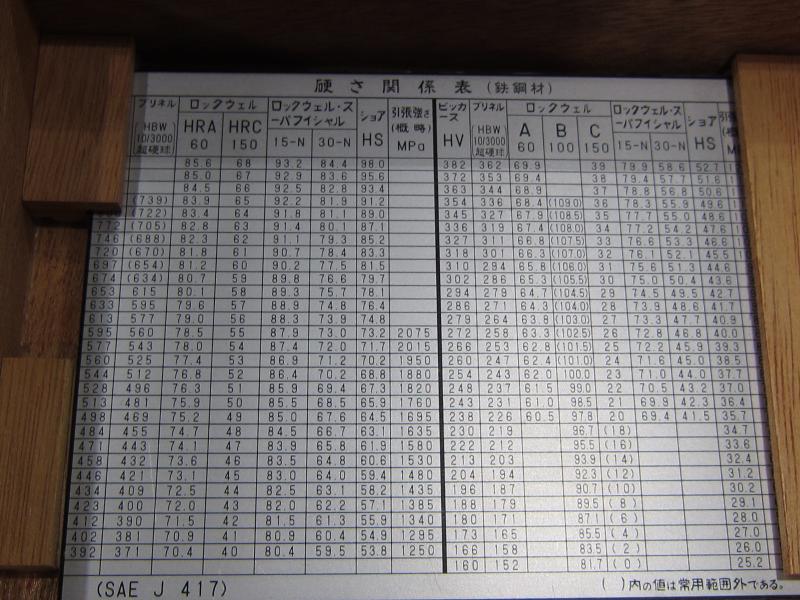 硬さ関係表(鉄鋼材)
ブリネル ロックウェル ロックウェル・スーパフイシャル ショア 引張強さ(概略) ビッカース ブリネル ロックウェル ロックウェル・スーパフイシャル ショア
(HBW 10/3000 超硬球) HRA 60 HRC 150 15-N 30-N HS MPa HV (HBW 10/3000 超硬球) A 60 B 100 C 150 15-N 30-N HS M
85.6 68 93.2 84.4 98.0 382 362 69.9 39 79.9 58.6 52.7
85.0 67 92.9 83.6 95.6 372 353 69.4 38 79.4 57.7 51.6
84.5 66 92.5 82.8 93.4 363 344 68.9 37 78.8 56.8 50.6
(739) 83.9 65 92.2 81.9 91.2 354 336 68.4 (109.0) 36 78.3 55.9 49.6
(722) 83.4 64 91.8 81.1 89.0 345 327 67.9 (108.5) 35 77.7 55.0 48.6
772 (705) 82.8 63 91.4 80.1 87.1 336 319 67.4 (108.0) 34 77.2 54.2 47.6
746 (688) 82.3 62 91.1 79.3 85.2 327 311 66.8 (107.5) 33 76.6 53.3 46.6
720 (670) 81.8 61 90.7 78.4 83.3 318 301 66.3 (107.0) 32 76.1 52.1 45.5
697 (654) 81.2 60 90.2 77.5 81.5 310 294 65.8 (106.0) 31 75.6 51.3 44.6
674 (634) 80.7 59 89.8 76.6 79.7 302 286 65.3 (105.5) 30 75.0 50.4 43.6
653 615 80.1 58 89.3 75.7 78.1 294 279 64.7 (104.5) 29 74.5 49.5 42.7
633 595 79.6 57 88.9 74.8 76.4 286 271 64.3 (104.0) 28 73.9 48.6 41.7
613 577 79.0 56 88.3 73.9 74.8 279 264 63.8 (103.0) 27 73.3 47.7 40.9
595 560 78.5 55 87.9 73.0 73.2 2075 272 258 63.3 (102.5) 26 72.8 46.8 40.0
577 543 78.0 54 87.4 72.0 71.7 2015 266 253 62.8 (101.5) 25 72.2 45.9 39.3
560 525 77.4 53 86.9 71.2 70.2 1950 260 247 62.4 (101.0) 24 71.6 45.0 38.5
544 512 76.8 52 86.4 70.2 68.8 1880 254 243 62.0 100.0 23 71.0 44.0 37.7
528 496 76.3 51 85.9 69.4 67.3 1820 248 237 61.5 99.0 22 70.5 43.2 37.0
513 481 75.9 50 85.5 68.5 65.9 1760 243 231 61.0 98.5 21 69.9 42.3 36.4
498 469 75.2 49 85.0 67.6 64.5 1695 238 226 60.5 97.8 20 69.4 41.5 35.7
484 455 74.7 48 84.5 66.7 63.1 1635 230 219 96.7 (18) 34.7
471 443 74.1 47 83.9 65.8 61.9 1580 222 212 95.5 (16) 33.6
458 432 73.6 46 83.5 64.8 60.6 1530 213 203 93.9 (14) 32.4
446 421 73.1 45 83.0 64.0 59.4 1480 204 194 92.3 (12) 31.2
434 409 72.5 44 82.5 63.1 58.2 1435 196 187 90.7 (10) 30.2
423 400 72.0 43 82.0 62.2 57.1 1385 188 179 89.5 (8) 29.1
412 390 71.5 42 81.5 61.3 55.9 1340 180 171 87.1 (6) 28.0
402 381 70.9 41 80.9 60.4 54.9 1295 173 165 85.5 (4) 27.0
392 371 70.4 40 80.4 59.5 53.8 1250 166 158 83.5 (2) 26.0
160 152 81.7 (0) 25.2
(SAE J 417) ( )内の値は常用範囲外である。